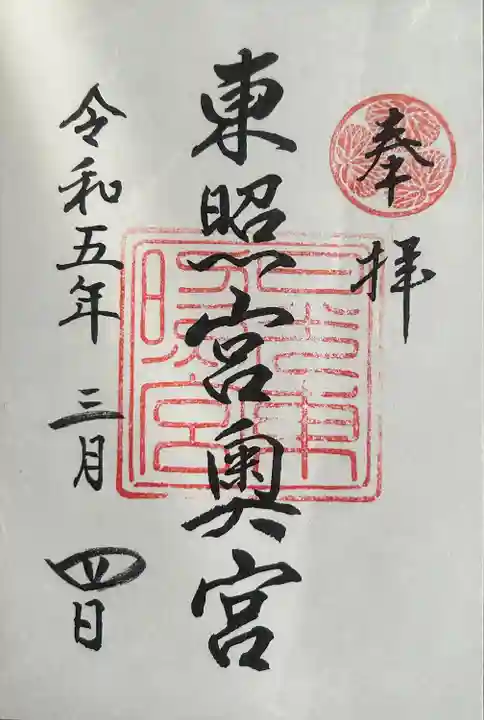 奉拝
東照宮奥宮
令和五年 三月 四日